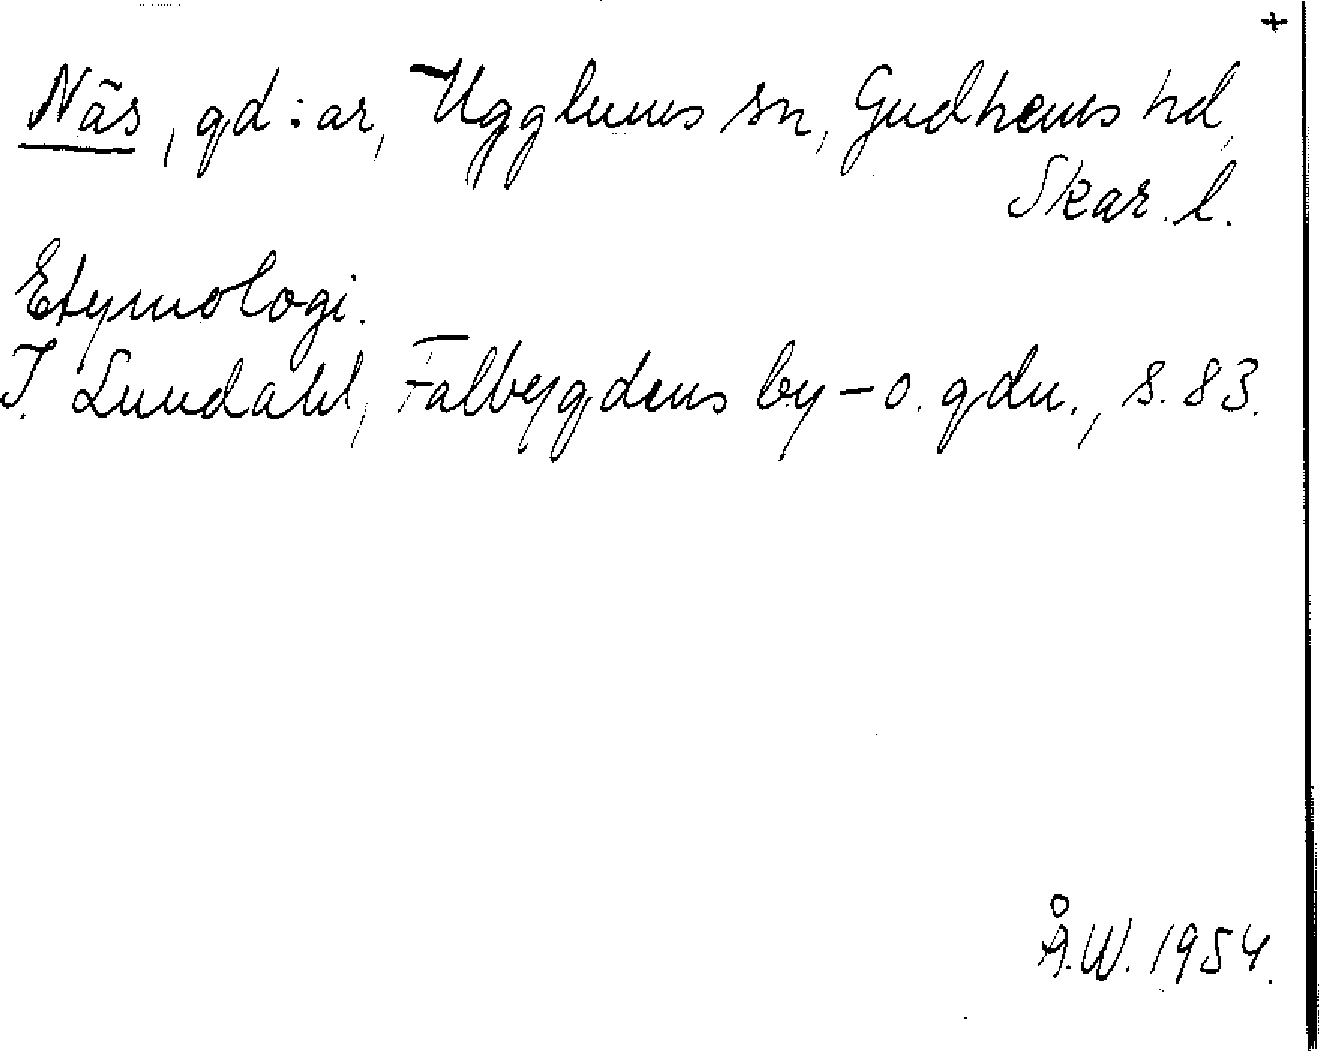 +
Näs, gd:ar, Ugglums sn, Gudhems hd,
Skar. l.
Etymologi.
I. Lundahl, Falbygdens by- o. gdn., s. 83.
Å.W. 1954.